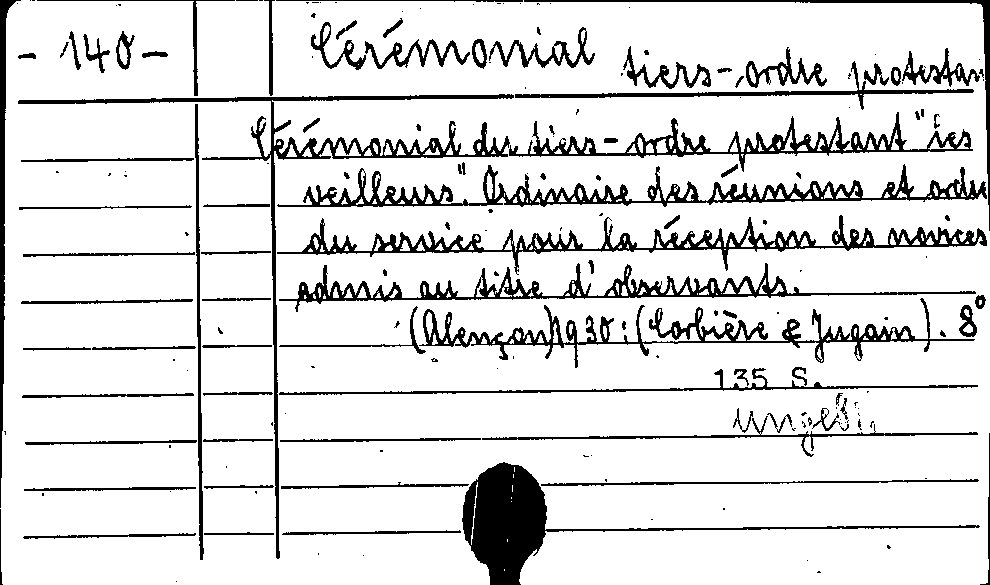 - 140 -
Cérémonial tiers-ordre protestan
Cérémonial du tiers-ordre protestant "les
veilleurs". Ordinaire des réunions et ordre
du service pour la réception des novices
admis au titre d'observants.
(Alençon) 1930: (Corbière & Jugain). 8°
135 S.